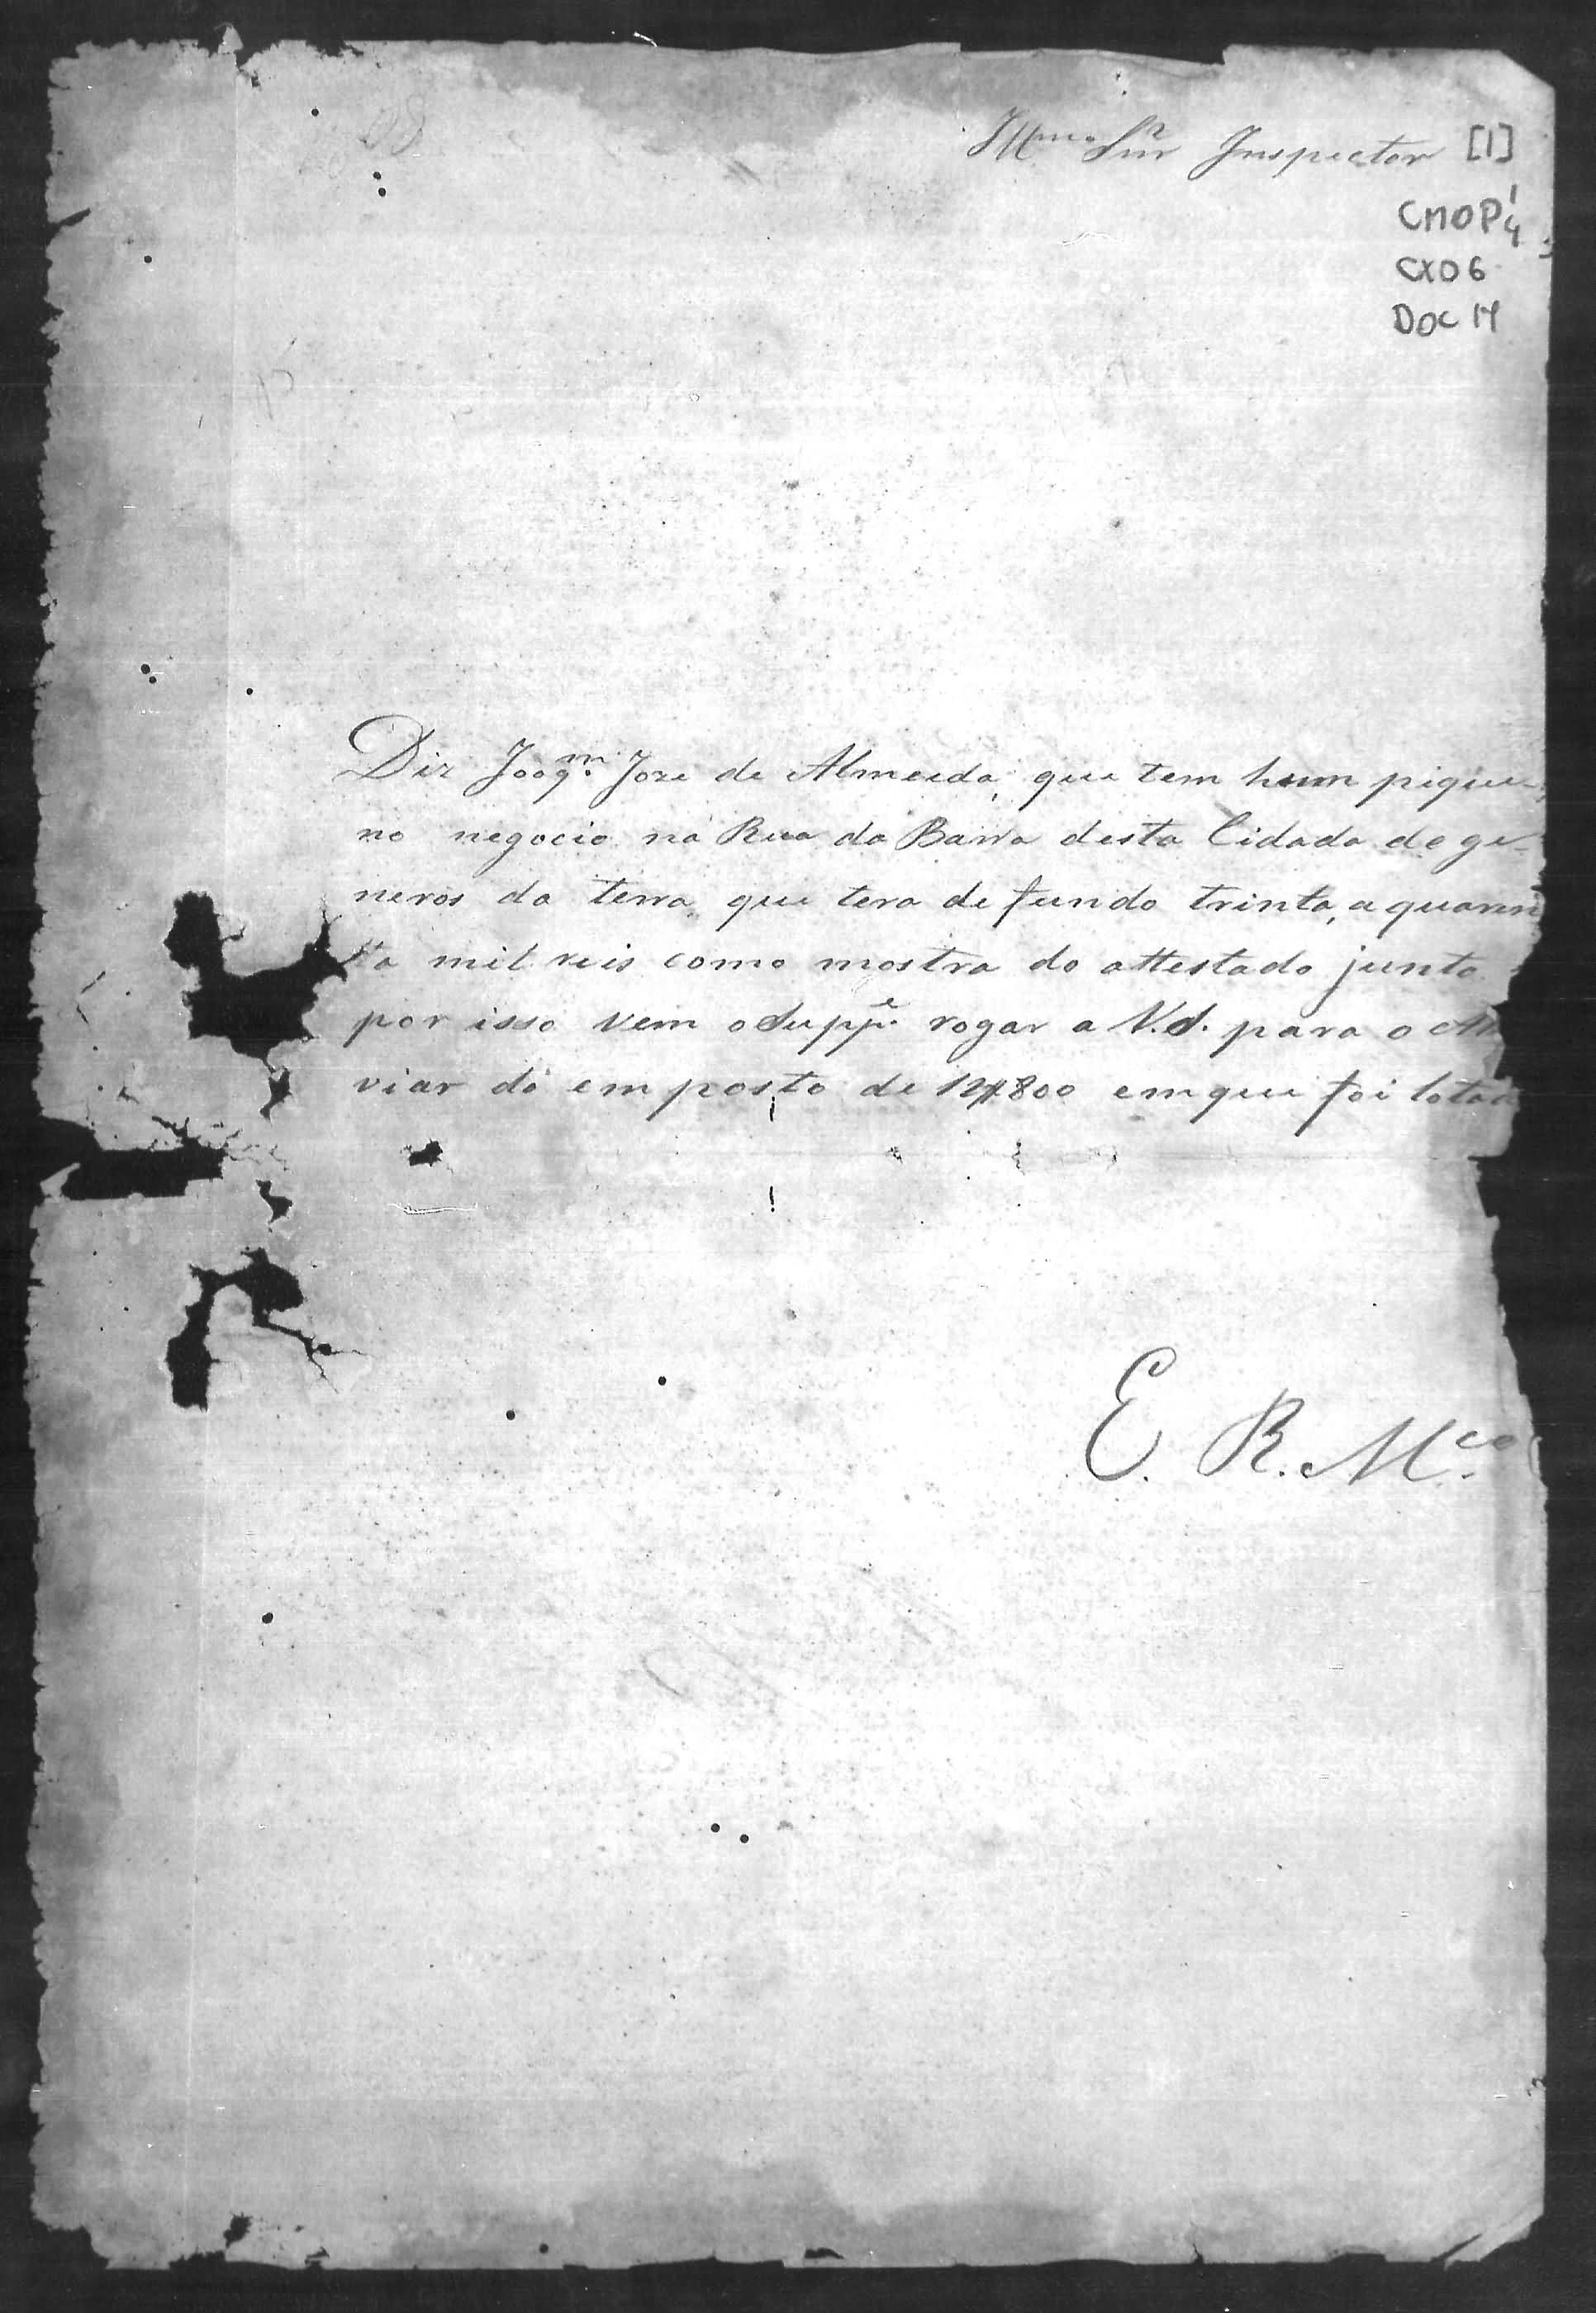 Illmo Snr Inspector [1]
CMOP 1/4
CX 06
DOC 14
Diz Joaqm. Joze de Almeida, que tem hum pique-
no negocio na Rua da Barra desta Cidade de ge-
neros da terra, que tera de fundo trinta, a quaren
ta mil reis como mostra do attestado junto
por isso vem o Suppe. rogar a V.S. para o
viar do emposto de 12$800 em que foi
E. R. Mce.